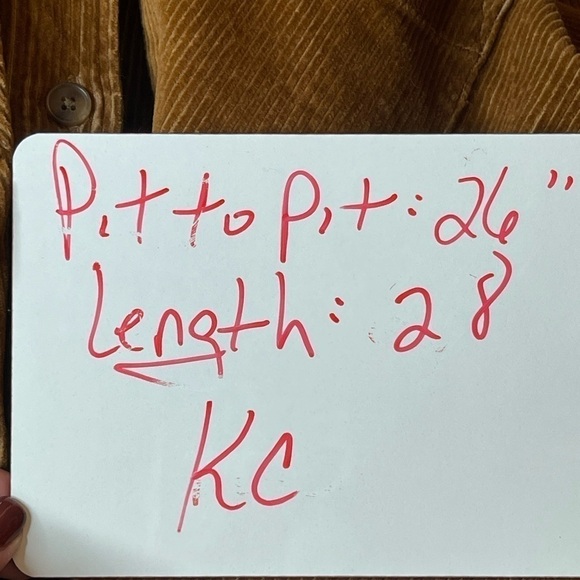 Pit to Pit: 26"
Length: 28
KC